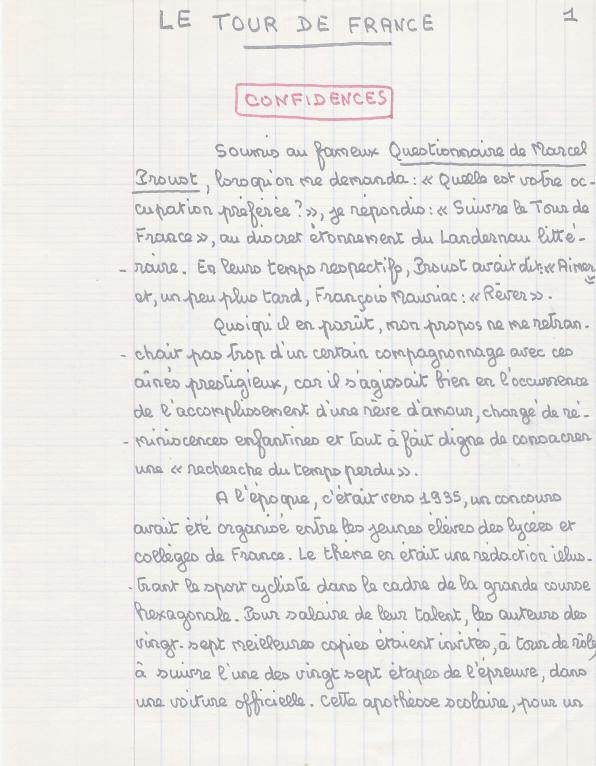 LE TOUR DE FRANCE 1
CONFIDENCES
Soumis au fameux Questionnaire de Marcel
Proust, lorsqu'on me demanda : « Quelle est votre oc-
cupation préférée ? », je répondis : « Suivre le Tour de
France », au discret étonnement du Landernau litté-
- raire. En leurs temps respectifs, Proust avait dit : « Aimer »
et, un peu plus tard, François Mauriac : « Rêver ».
Quoiqu'il en parût, mon propos ne me retran-
- chait pas trop d'un certain compagnonnage avec ces
aînés prestigieux, car il s'agissait bien en l'occurrence
de l'accomplissement d'une rêve d'amour, chargé de ré-
- miniscences enfantines et tout à fait digne de consacrer
une « recherche du temps perdu ».
A l'époque, c'était vers 1935, un concours
avait été organisé entre les jeunes élèves des lycées et
collèges de France. Le thème en était une rédaction illus-
- trant le sport cycliste dans le cadre de la grande course
hexagonale. Pour salaire de leur talent, les auteurs des
vingt-sept meilleures copies étaient invités, à tour de rôle,
à suivre l'une des vingt sept étapes de l'épreuve, dans
une voiture officielle. Cette apothéose scolaire, pour un